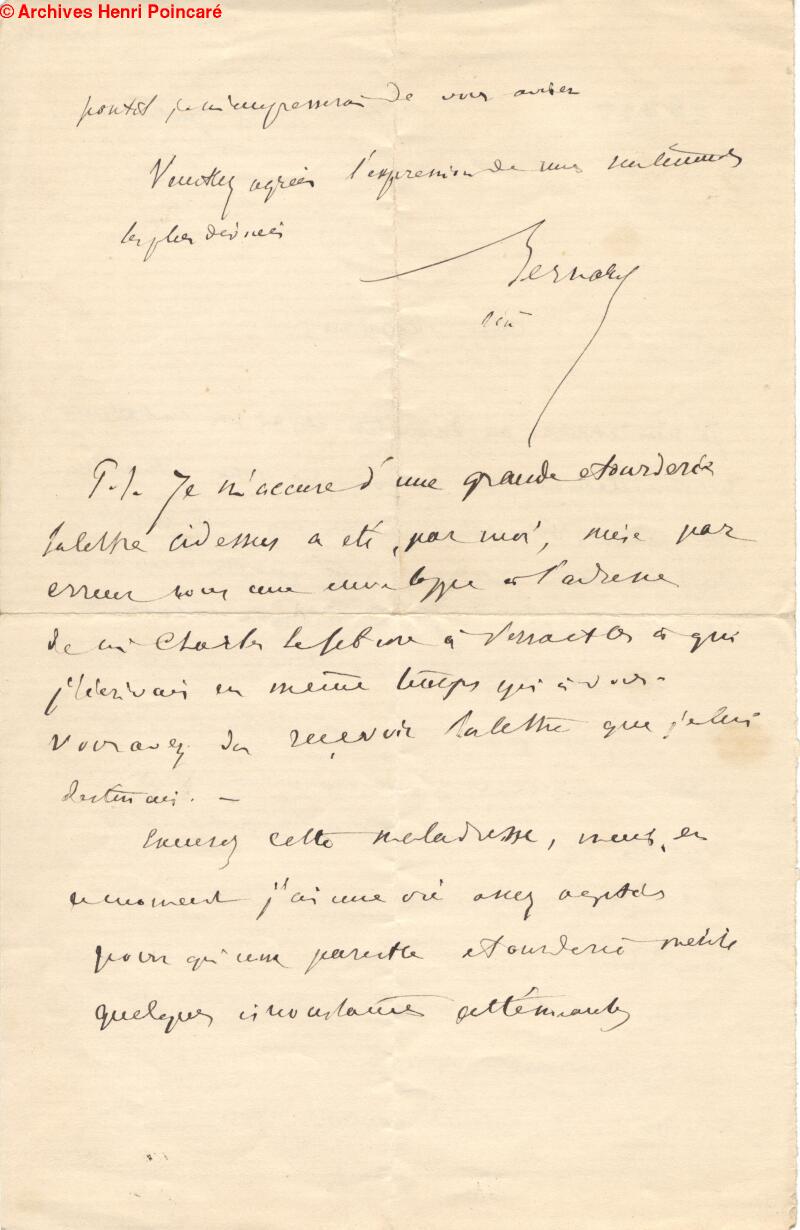 © Archives Henri Poincaré
je m'empresserai de vous aviser
Veuillez agréer l'expression de mes sentiments
les plus dévoués
Bernard
P.S. Je m'accuse d'une grande etourderie
la lettre cidessus a eté, par moi, mise par
erreur sous une enveloppe à l'adresse
de M Charles Lefebvre à Versailles à qui
j'écrivais en même temps qu'à vous.
Vous avez du recevoir la lettre que je lui
destinais. —
Excusez cette maladresse, mais, en
ce moment j'ai une vie assez agitée
pour qu'une pareille etourderie mérite
quelques circonstances atténuantes